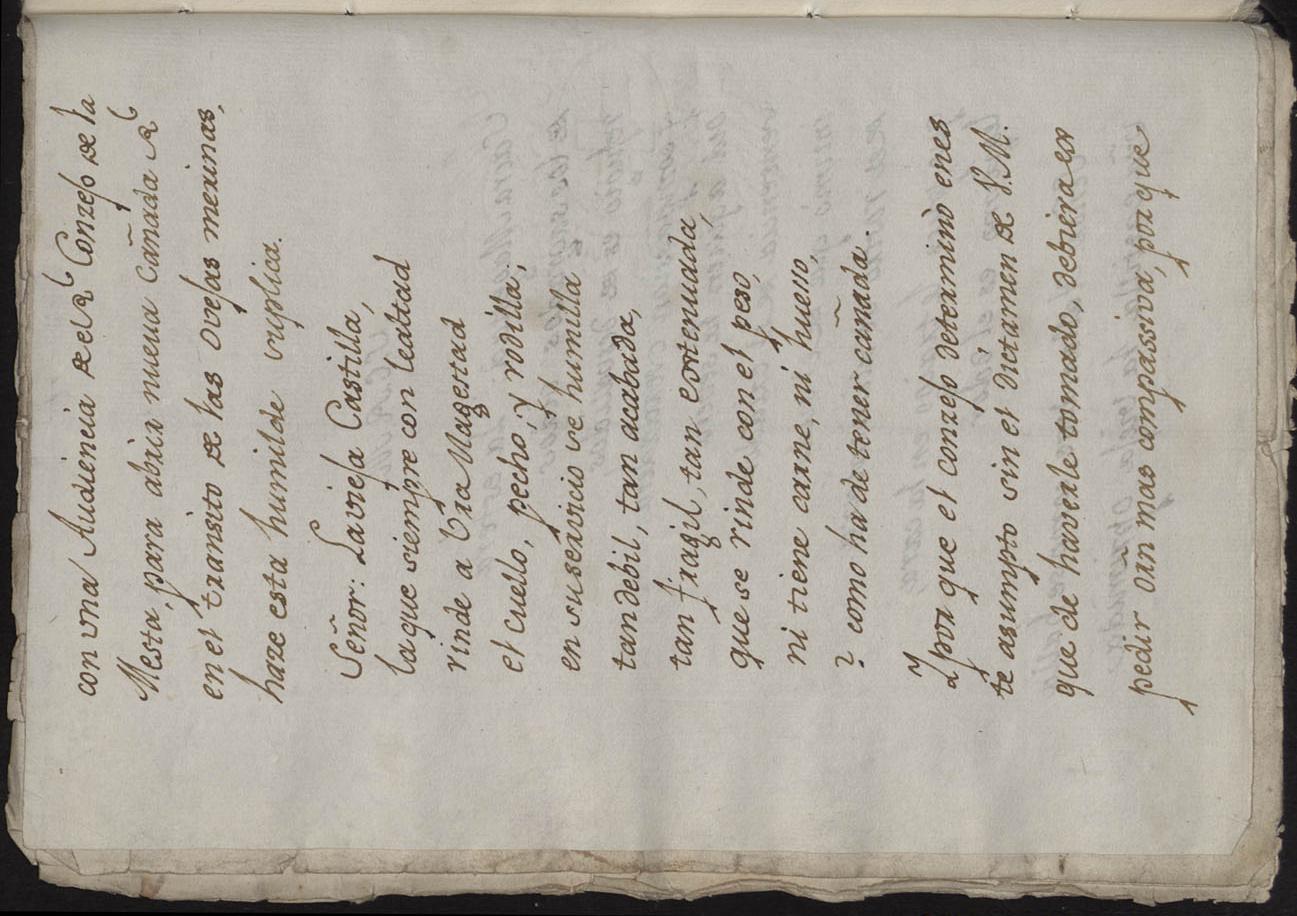 con vna Audiencia del R.l Conzejo de la
Mesta, para abrir nueva Cañada R.l
en el transito de las ovejas merinas,
haze esta humilde suplica.
Señor: La vieja Castilla,
la que siempre con lealtad
rinde a Vra Magestad
el cuello, pecho, y rodilla,
en su servicio se humilla
tan debil, tan acabada,
tan fragil, tan extenuada,
que se rinde con el peso,
ni tiene carne, ni hueso,
? como ha de tener cañada.
Y por que el conzejo determinò en es
te asumpto sin el dictamen de S.M.
que de haverle tomado, debiera ex
pedir orñ mas compassiva, porque